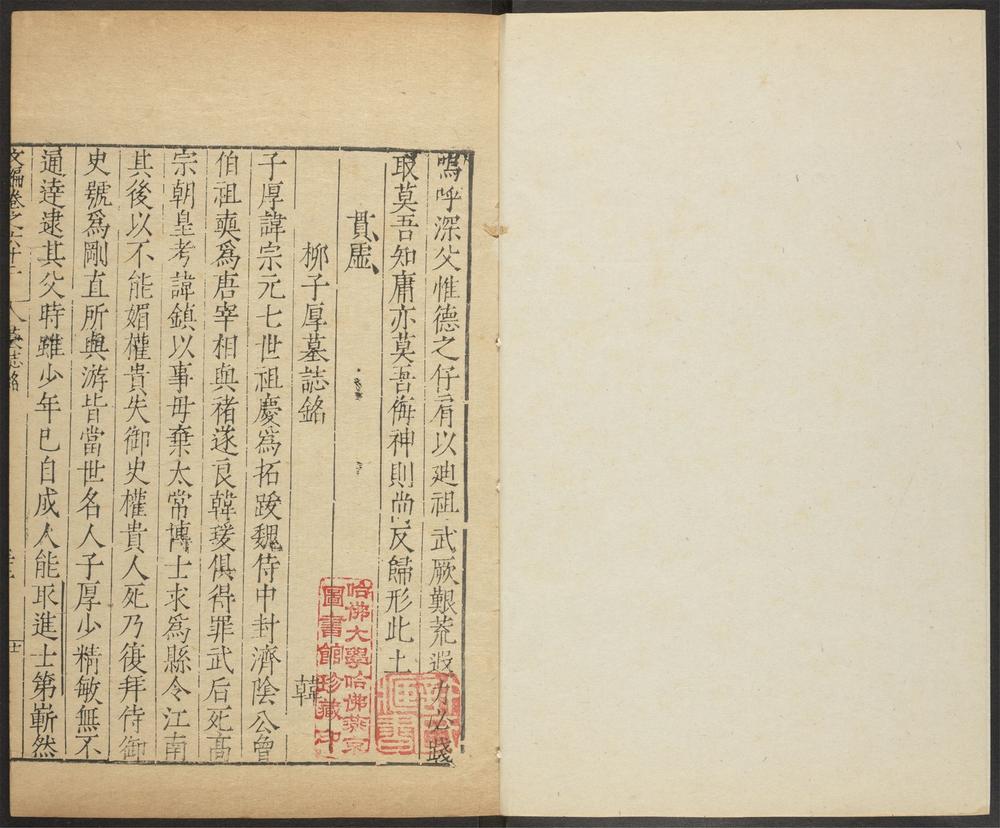 嗚呼深父惟德之仔肩以廸祖武厥艱荒遐力必踐
取莫吾知庸亦莫吾侮神則尚反歸形此土
貫虛
柳子厚墓誌銘
韓
子厚諱宗元七世祖慶爲拓䟦魏侍中封濟陰公曾
伯祖奭爲唐宰相與褚遂良韓瑗俱得罪武后死高
宗朝皇考諱鎮以事母棄太常博士求爲縣令江南
其後以不能媚權貴失御史權貴人死乃復拜侍御
史號爲剛直所與游皆當世名人子厚少精敏無不
通達逮其父時雖少年已自成人能取進士第嶄然
文編卷之六十二
墓誌銘
哈佛大學哈佛燕京
圖書館珍藏印